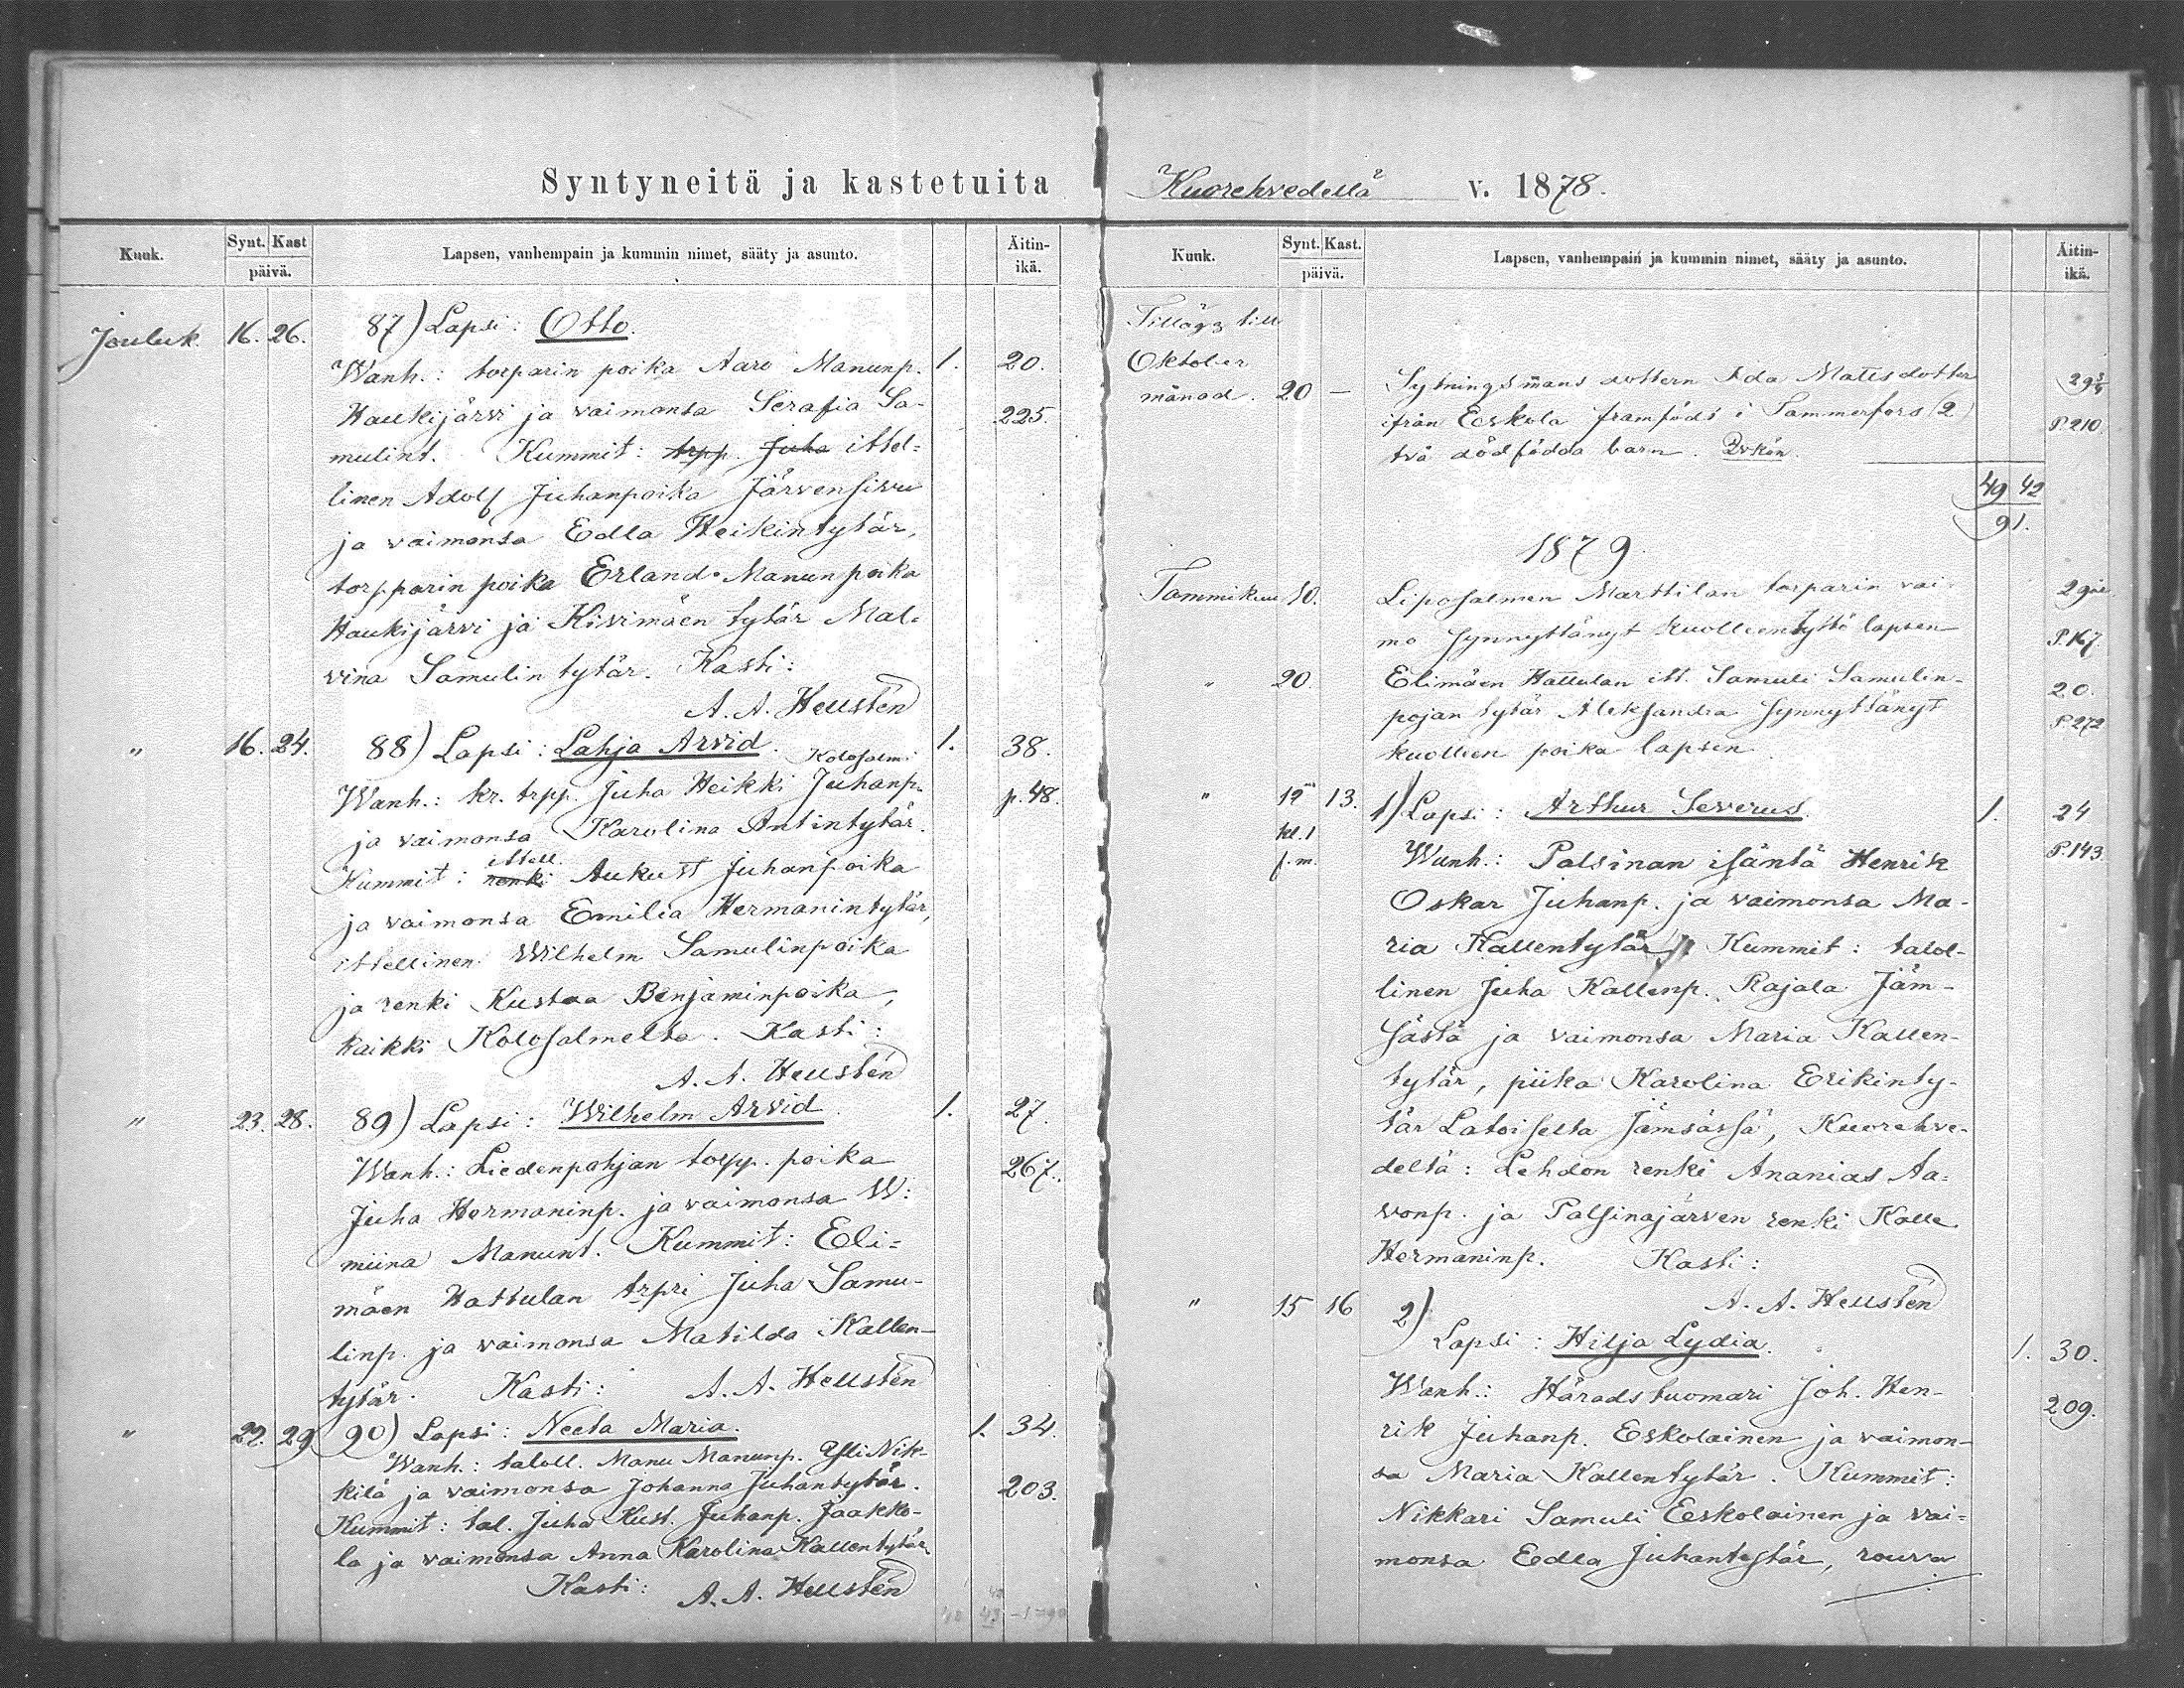 Syntyneitä ja kastetuita
Kuuk. Synt. Kast päivä. Lapsen, vanhempain ja kummin nimet, sääty ja asunto. Äitin-ikä.
Jouluk. 16. 26. 87) Lapsi: Otto.
Wanh.: torparin poika Aaro Manunp. 1. 20.
Haukijärvi ja vaimonsa Serafia Sa- 225.
mulint. Kummit: trpp. Juha ittel=
linen Adolf Juhanpoika Järvensivu
ja vaimonsa Edla Heikintytär,
torpparin poika Erland Manunpoika
Haukijärvi ja Kivimäen tytär Mal=
vina Samulin tytär. Kasti:
A. A. Hellstén
" 16. 24. 88) Lapsi: Lahja Arvid. 1. 38.
Kolosalmi
Wanh.: kr. trpp. Juha Heikki Juhanp. p. 48.
ja vaimonsa Karolina Antintytär.
ittell.
Kummit: renki Aukusti Juhanpoika
ja vaimonsa Emilia Hermanintytär,
ittellinen Wilhelm Samulinpoika
ja renki Kustaa Benjaminpoika,
kaikki Kolosalmelta. Kasti:
A. A. Hellstén
" 23. 28. 89) Lapsi: Wilhelm Arvid. 1. 27.
Wanh.: Liedenpohjan torpp. poika 267.
Juha Hermaninp. ja vaimonsa W:
miina Manunt. Kummit: Eli=
mäen Hattulan trpri Juha Samu-
linp. ja vaimonsa Matilda Kallen-
tytär. Kasti: A. A. Hellstén
" 22. 29 90) Lapsi: Neeta Maria. 1. 34.
Wanh.: taloll. Manu Manunp. Yli Nik-
kilä ja vaimonsa Johanna Juhantytär. 203.
Kummit: tal. Juha Kust. Juhanp. Jaakko-
la ja vaimonsa Anna Karolina Kallentytär.
Kasti: A. A. Hellstén
Kuorehvedellä v. 1878.
Kuuk. Synt. Kast. päivä. Lapsen, vanhempain ja kummin nimet, sääty ja asunto. Äitin-ikä.
Tillägg till
Oktober
månad. 20 - Sytningsmans dottern Ida Matts dotter 29 3/4
ifrån Eskola framfödt i Tammerfors (2) P. 210.
två dödfödda barn.
49 42
91.
1879.
Tammikuu 10. Liposalmen Marttilan torparin vai-
mo synnyttänyt kuolleen tyttö lapsen P. 167.
" 20. Elimäen Hattulan itt. Samuli Samulin- 20.
pojan tytär Aleksandra synnyttänyt P. 272
kuolleen poika lapsen.
" 12 13. 1) Lapsi: Arthur Severus. 1. 24
kl. 1
f. m. Wanh.: Palsinan isäntä Henrik P. 143.
Oskar Juhanp. ja vaimonsa Ma-
ria Kallentytär. Kummit: talol-
linen Juha Kallenp. Rajala Jäm-
sästä ja vaimonsa Maria Kallen-
tytär, piika Karolina Erikinty-
tär Latoiselta Jämsässä, Kuorehve-
deltä: Lehdon renki Ananias Aa-
vonp. ja Palsinajärven renki Kalle
Hermaninp. Kasti:
A. A. Hellstén
" 15 16 2)
Lapsi: Hilja Lydia. 1. 30.
Wanh.: Häradstuomari Joh. Hen- 209.
rik Juhanp. Eskolainen ja vaimon-
sa Maria Kallentytär. Kummit:
Nikkari Samuli Eskolainen ja vai-
monsa Edla Juhantytär, rouva